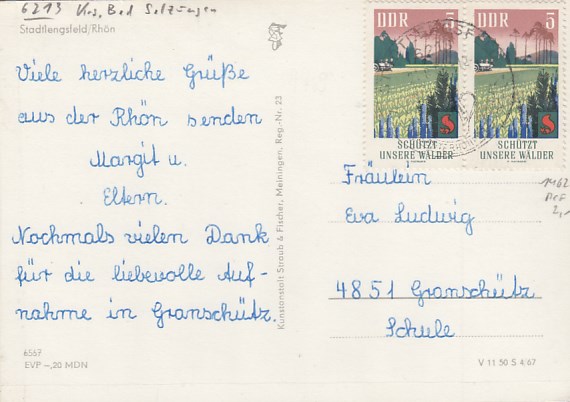 6213 Krs. Bad Salzungen
Stadtlengsfeld/Rhön
Viele herzliche Grüße
aus der Rhön senden
Margit u.
Eltern.
Nochmals vielen Dank
für die liebevolle Auf-
nahme in Granschütz.
6557
EVP –,20 MDN
Kunstanstalt Straub & Fischer, Meiningen, Reg.-Nr. 23
DDR 5
SCHÜTZT
UNSERE WÄLDER
DDR 5
SCHÜTZT
UNSERE WÄLDER
Fräulein
Eva Ludwig
4851 Granschütz
Schule
1462
2,-
V 11 50 S 4/67